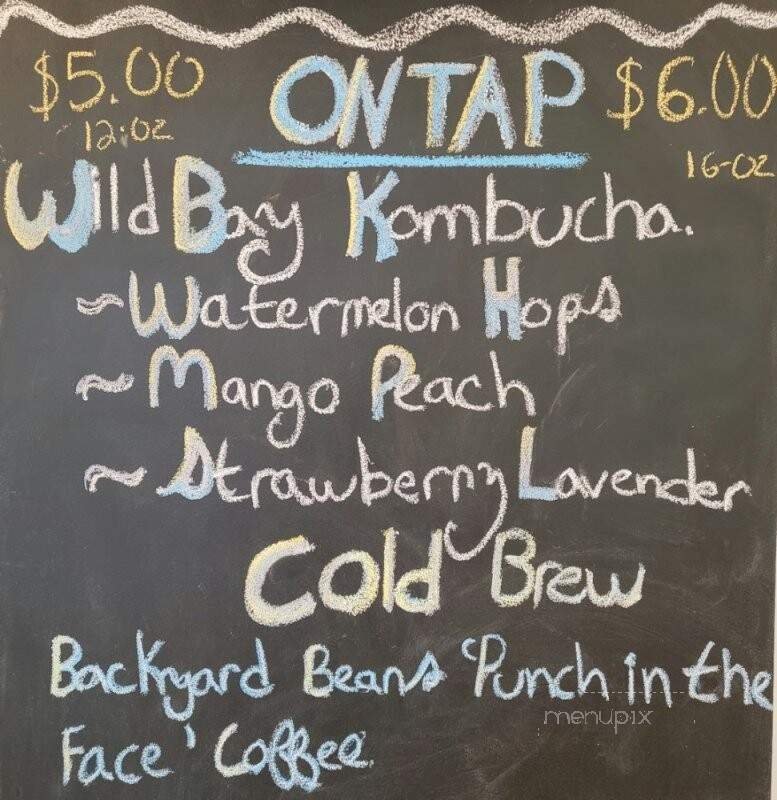 $5.00 ONTAP $6.00
12:oz 16-oz
Wild Bay Kombucha.
~Watermelon Hops
~Mango Peach
~Strawberry Lavender
Cold Brew
Backyard Beans 'Punch in the
menupix
Face' Coffee.